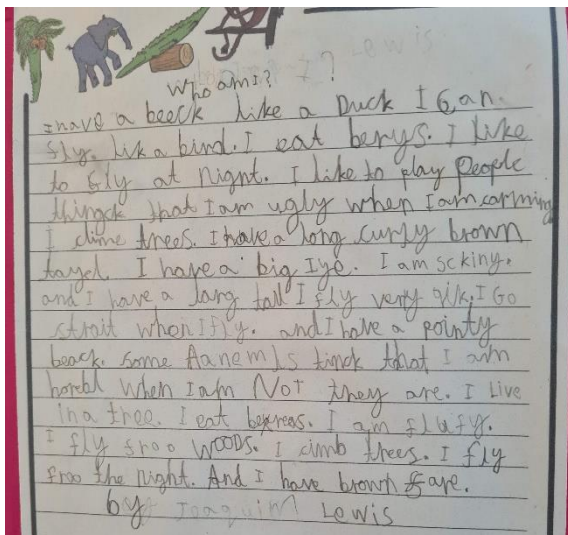 Lewis
Who am I?
I have a beeck like a Duck I Can.
fly. lik a bird. I eat berys. I like
to fly at night. I like to play People
thingck that I am ugly when I am carming
I clime trees. I have a long curly brown
tayel. I have a big Iye. I am scking.
and I have a larg tail I fly very qik. I Go
strait when I fly. and I have a pointy
beack. some Aanemls tinck that I am
horebl when I am Not they are. I Live
in a tree. I eat berres. I am flufy.
I fly froo WOODS. I cimb trees. I fly
froo the night. And I have brown fare.
by Joaquim Lewis